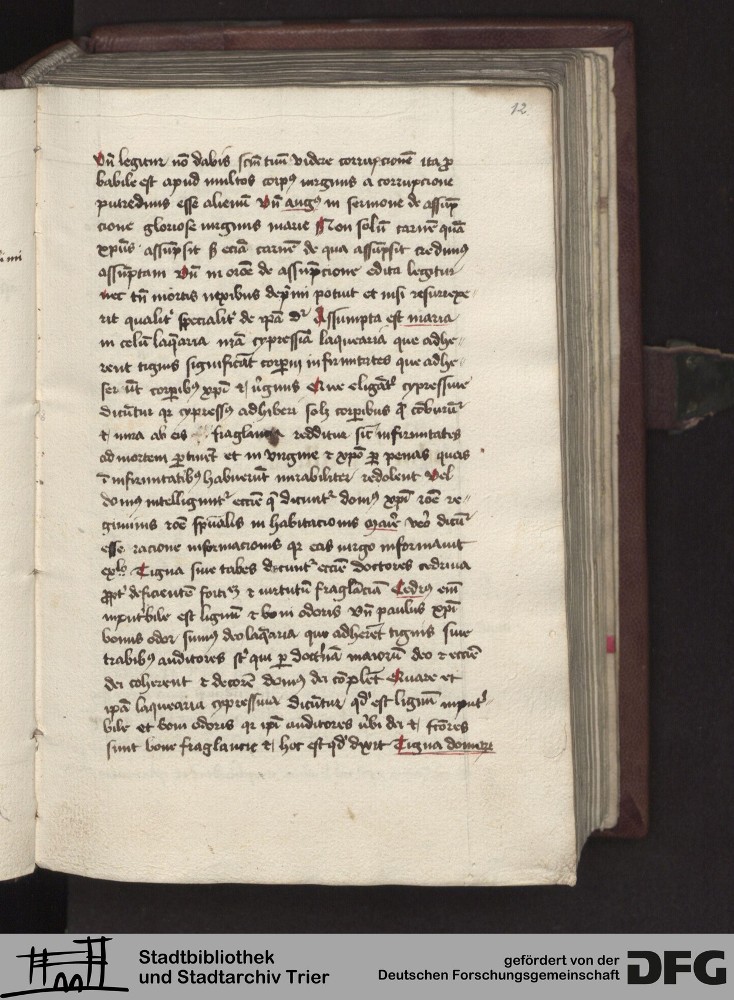 12
Vn̄ legitur nō dabis scm̄ tuū videre corrupcionē ita pro
babile est apud multos corpꝰ virginis a corrupcione
putredinis esse alienū Vn̄ augꝰ in sermone de assūp
cione gloriose virginis marie Non solū carnē quā
xpūs assūpsit sꝫ eciā carnē de qua assūpsit credimꝰ
assūptam Vn̄ in orōe de assūpcione edita legitur
nec tn̄ mortis nexibus dep̄mi potuit et nisi resurrexe
rit qualiter specialiter de ip̄a dr̄ Assumpta est maria
in celū laq̄aria nr̄a cypressiā laquearia que adhe
rent tignis significāt corpꝝ infirmitates que adhe
serūt corpibus xp̄i et v̓ginis Que cypressine
dicūtur qr cypressꝰ adhiberi solꝫ corpibus
et mira ab eis fraglancia redditur sic infirmitates
ad mortem ꝑtinēt et in virgine et xp̄o ꝑ penas quas
ī infirmitatibꝰ habuerūt mirabiliter redolent Vel
domꝰ intelligunt᷑ eccīe q̄ dicunt᷑ domꝰ xp̄i rōe re
giminis rōe sp̄ualis in habitacionis Marie vero dicūt᷑
esse racione informacionis qr eas virgo informauit
Tigna siue trabes dicunt᷑ eccīe doctores cedrina
ꝓpt᷑ et virtutū fraglāciā Cedrꝰ em̄
inputribile est lignū et boni odoris Vn̄ paulus xp̄i
bonus odor sumꝰ deo laq̄aria quo adherēt tignis siue
trabibꝰ auditores sūt qui ꝑ doctrinā maiorū deo et eccīe
dei coherent et decorē domꝰ dei cōplēt Quare et
ip̄a laquearia cypressina dicūtur qd̓ est lignū inputri
bile et boni odoris qr ip̄i auditores v̓bi dei et fc̄ores
sunt bone fraglancie et hoc est qd̓ dixit Tigna domorꝝ
Stadtbibliothek
und Stadtarchiv Trier
gefördert von der
Deutschen Forschungsgemeinschaft
DFG